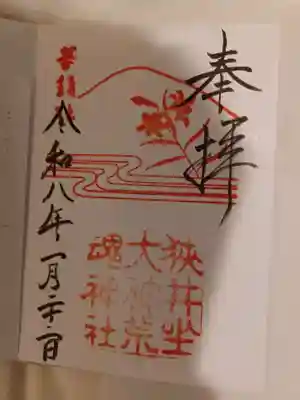 奉拝
狭井坐
大神荒
魂神社
令和八年一月二十日